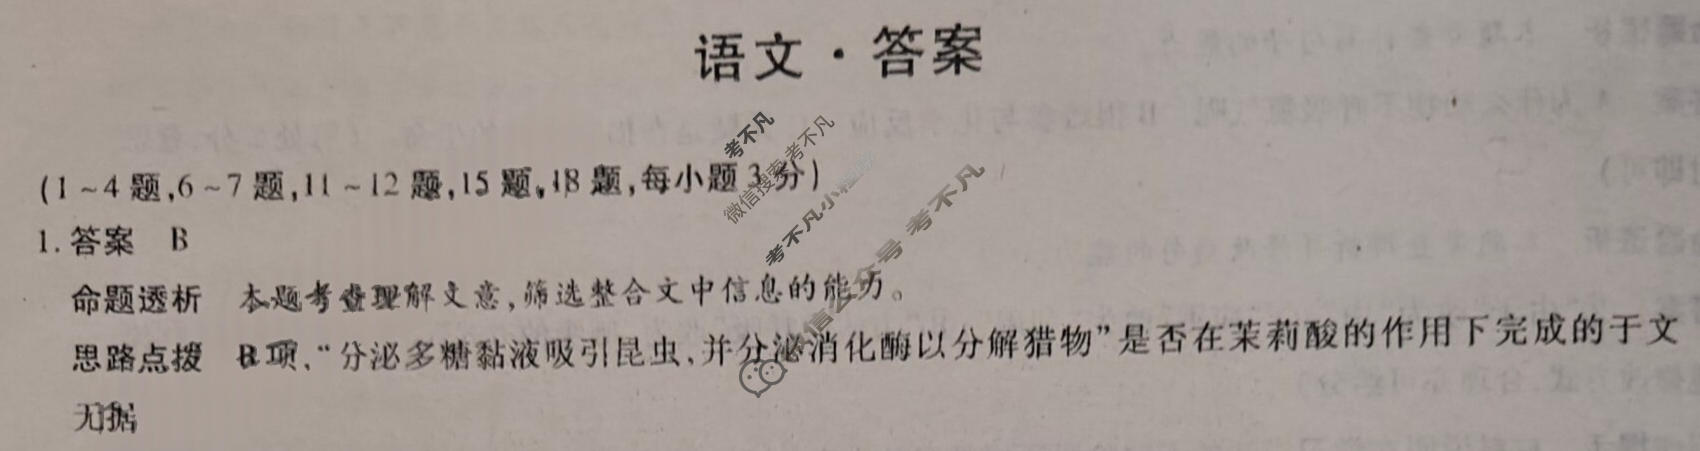 语文·答案
(1~4题,6~7题,11~12题,15题,18题,每小题3分)
1.答案 B
命题透析 本题考查理解文意,筛选整合文中信息的能力。
思路点拨 B项,“分泌多糖黏液吸引昆虫,并分泌消化酶以分解猎物”是否在茉莉酸的作用下完成的于文
无据
考不凡
微信搜索考不凡
考不凡小程序
微信公众号 考不凡